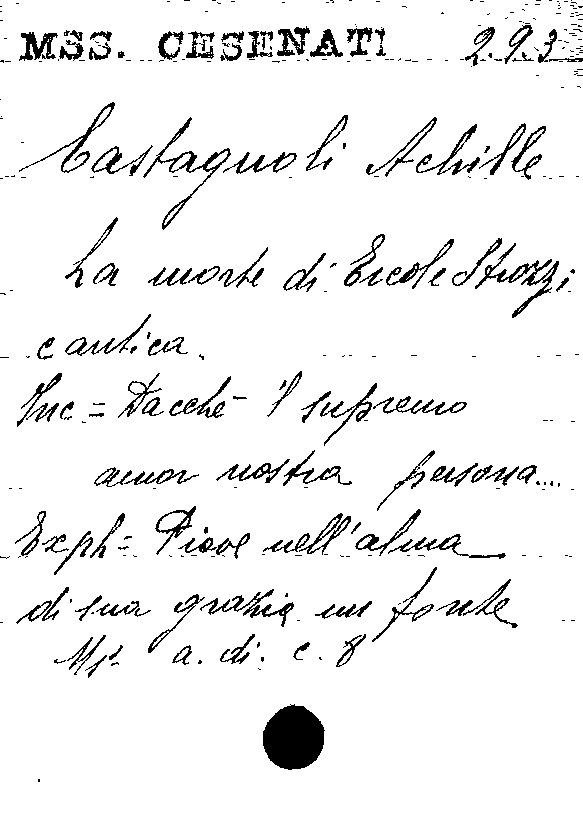 MSS. CESENATI 293
Castagnoli Achille
La morte di Ercole Strozzi
cantica.
Inc = Dacchè il supremo
amor nostra persona....
Exph = Piove nell'alma
di sua grazia un fonte
Ms. a. di. c. 8